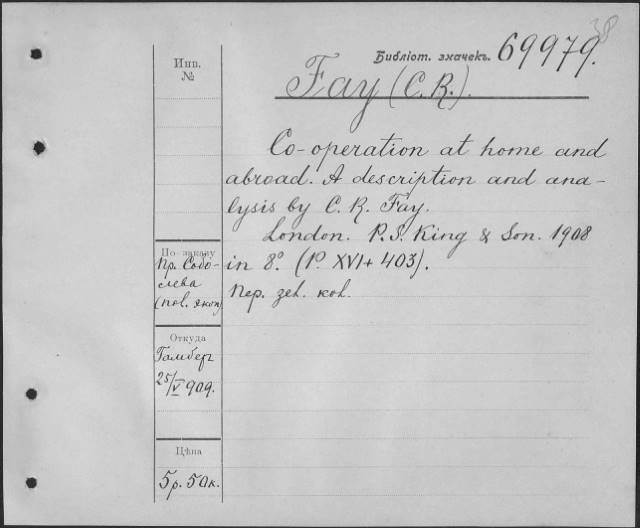 38
Библіот. значекъ. 69979.
Fay (C. R.).
Инв.
№
Co-operation at home and
abroad. A description and ana-
lysis by C. R. Fay.
London. P. S. King & Son. 1908
in 8°. (P. XVI+403).
Пер. зел. кол.
По заказу
Пр. Собо-
лева
(пол. экон)
Откуда
Гамбер
25/V 909.
Цѣна
5р. 50к.